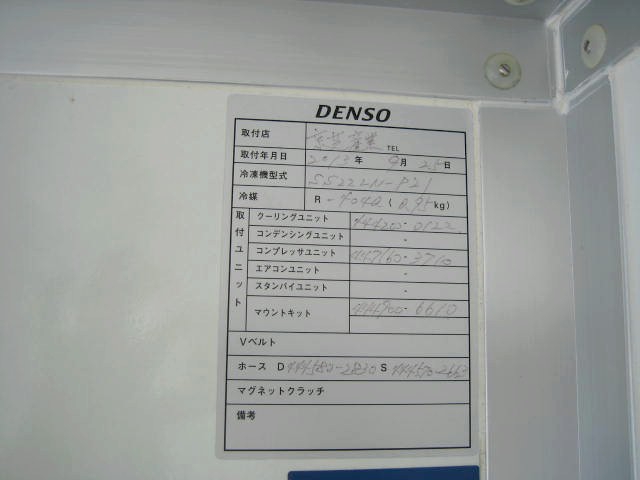 DENSO
取付店 産業 TEL
取付年月日 2013 年 9 月 25 日
冷凍機型式 SS222LN-P21
冷媒 R -404A ( 0.95 kg)
取付ユニット
クーリングユニット 444200-0122
コンデンシングユニット -
コンプレッサユニット 447160-3710
エアコンユニット -
スタンバイユニット -
マウントキット 444900-6610
Vベルト
ホース D 444580-2830 S 444570-2663
マグネットクラッチ
備考